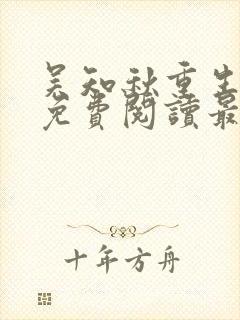 吴知秋重生
免費閱讀最
十年方舟